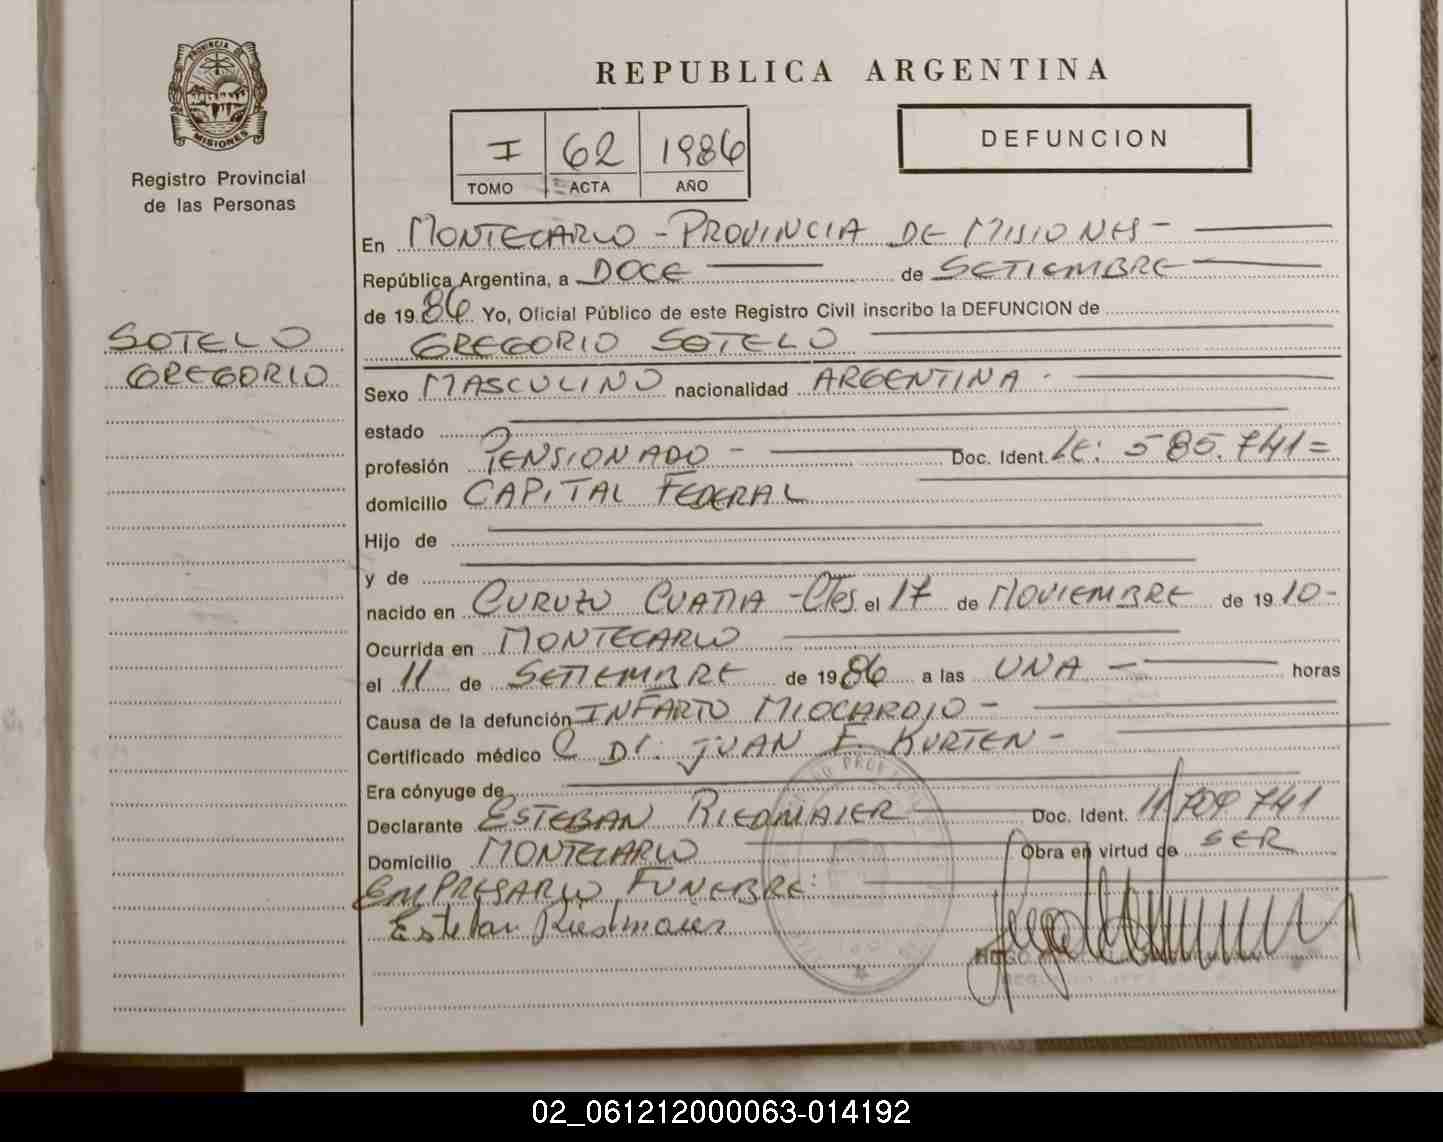 PROVINCIA DE
MISIONES
Registro Provincial
de las Personas
SOTELO
GREGORIO
REPUBLICA ARGENTINA
I 62 1986
TOMO ACTA AÑO
DEFUNCION
En MONTECARLO - PROVINCIA DE MISIONES -
República Argentina, a DOCE de SETIEMBRE
de 1986 Yo, Oficial Público de este Registro Civil inscribo la DEFUNCION de
GREGORIO SOTELO
Sexo MASCULINO nacionalidad ARGENTINA -
estado
profesión PENSIONADO - Doc. Ident. LE: 585.741=
domicilio CAPITAL FEDERAL
Hijo de
y de
nacido en CURUZU CUATIA - Ctes el 17 de NOVIEMBRE de 1910-
Ocurrida en MONTECARLO
el 11 de SETIEMBRE de 1986 a las UNA - horas
Causa de la defunción INFARTO MIOCARDIO -
Certificado médico C DR. JUAN E. KURTEN -
Era cónyuge de
Declarante ESTEBAN RIEDMAIER Doc. Ident. 11.704.741
Domicilio MONTECARLO Obra en virtud de SER
EMPRESARIO FUNEBRE:
Esteban Riedmaier
HUGO
02_061212000063-014192